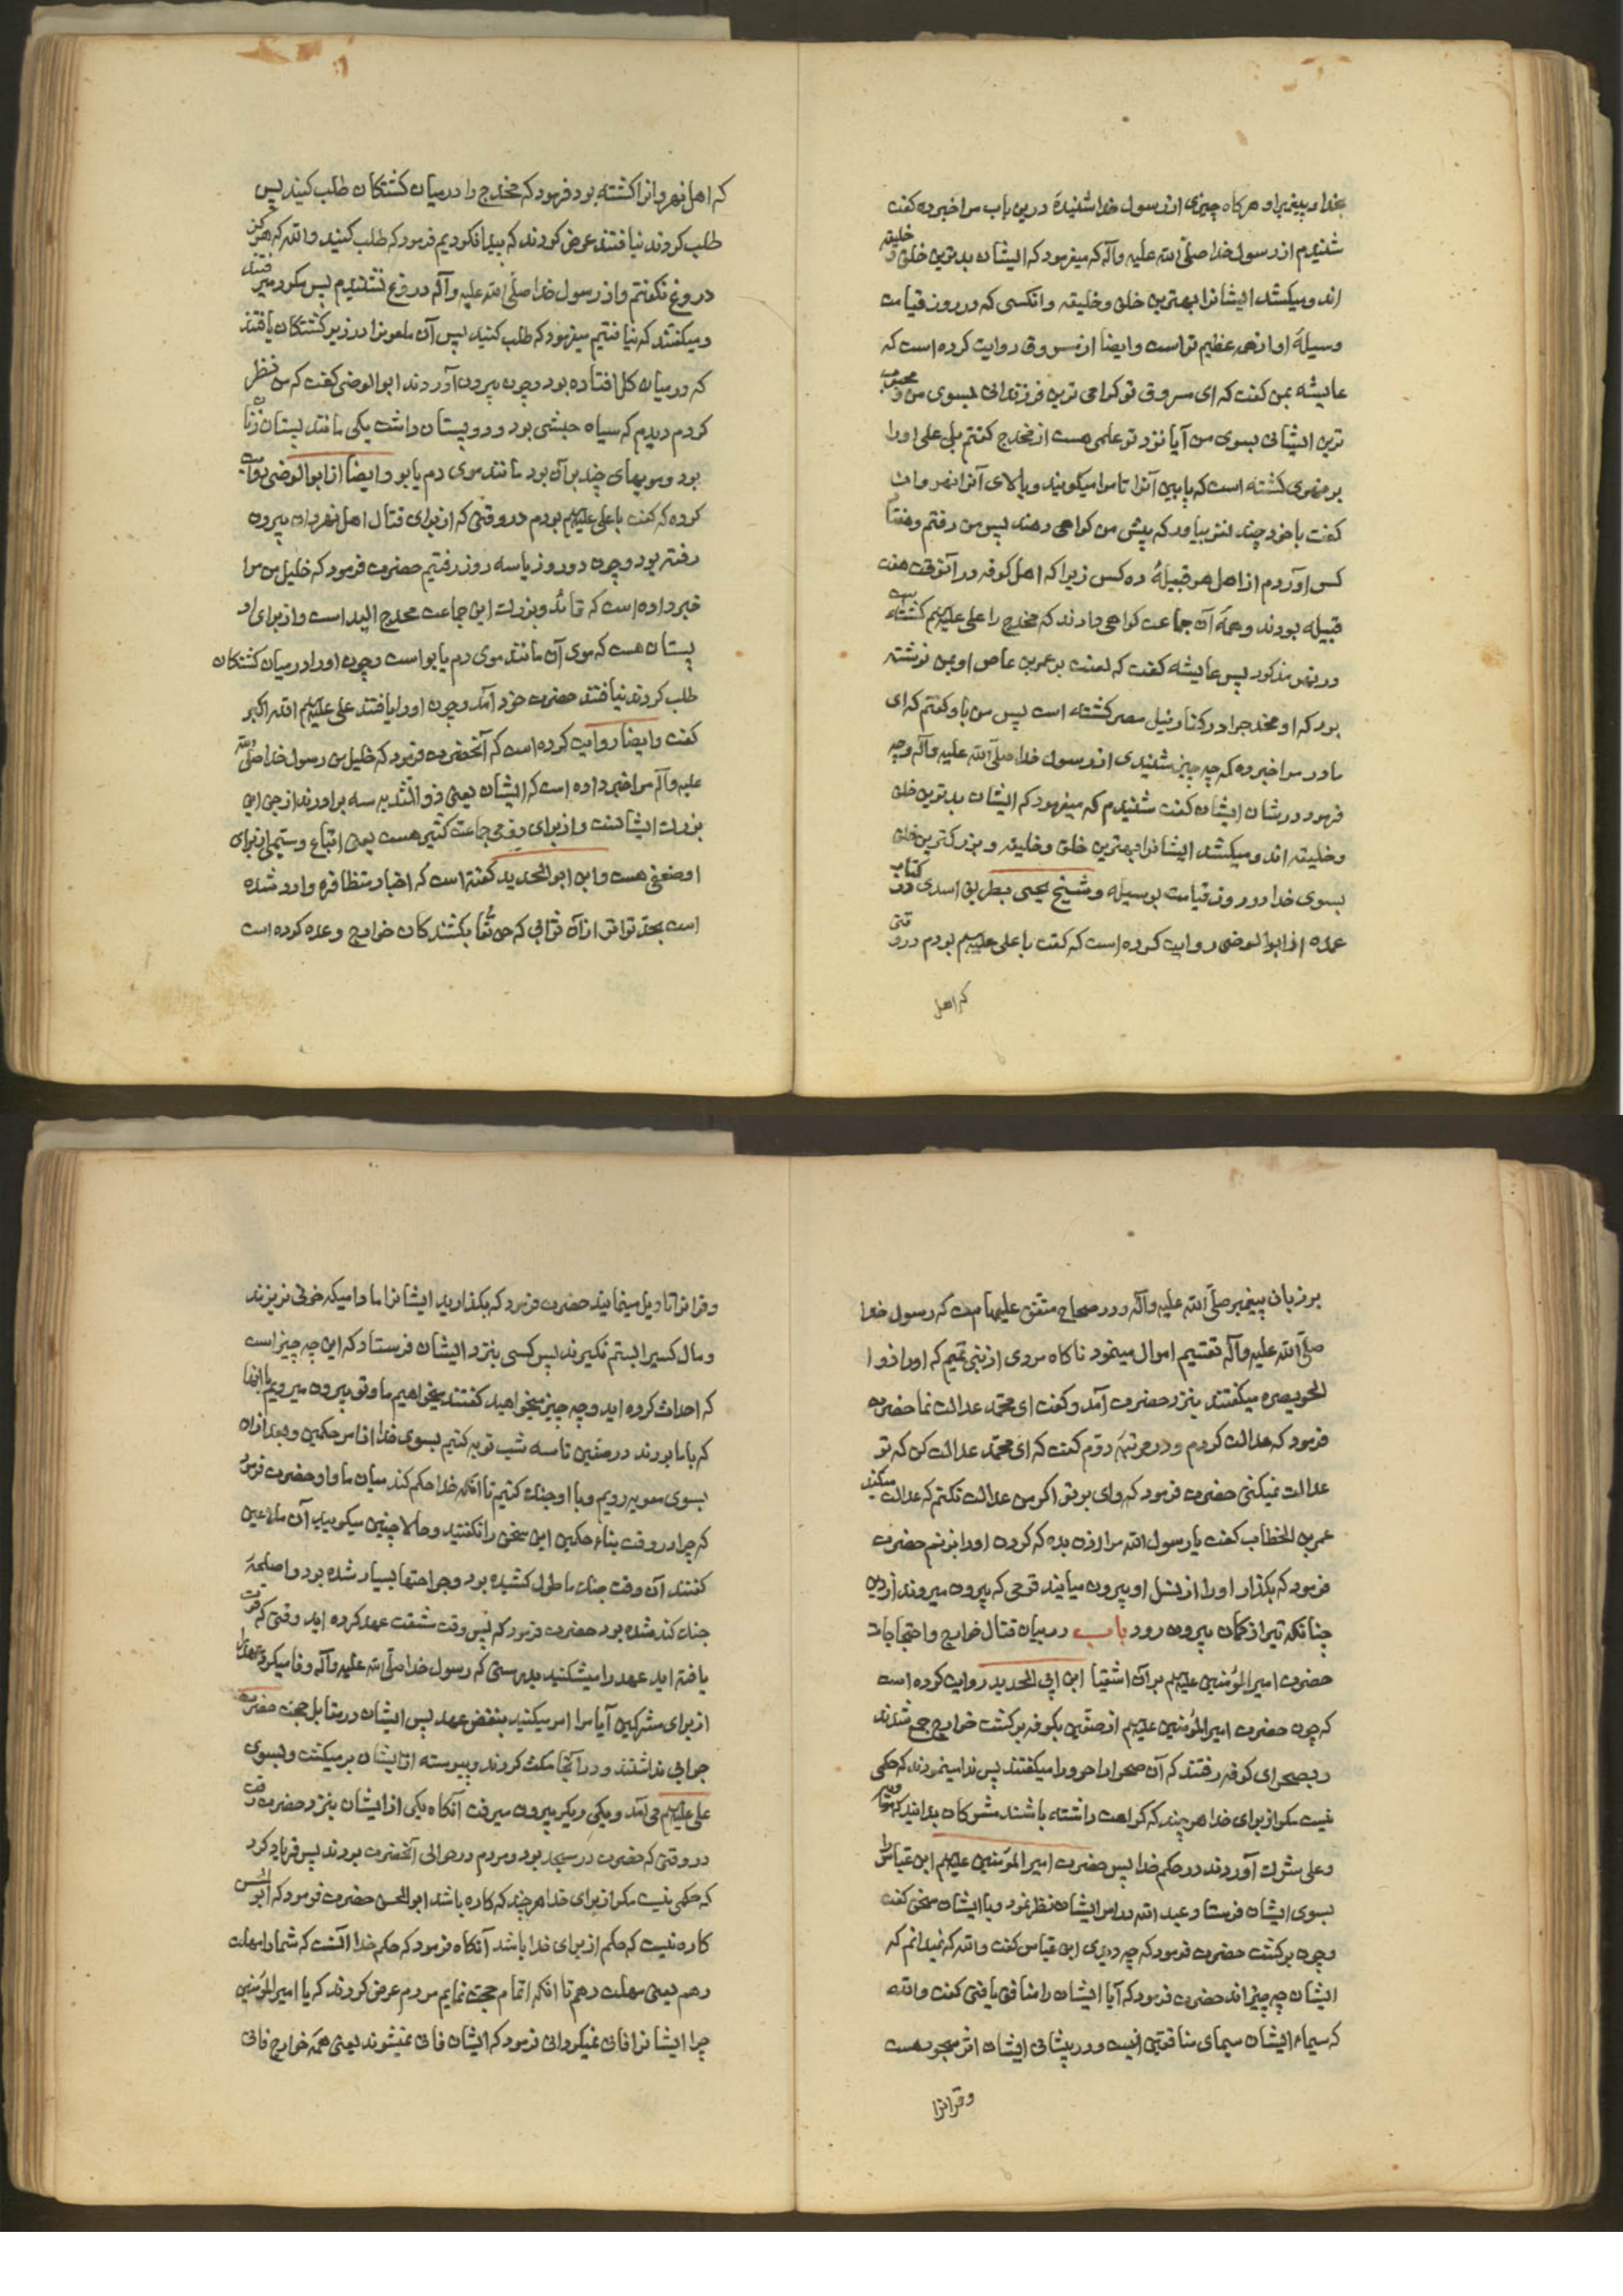 بخدا و پیغمبر او هرکاه چیزی از رسول خدا شنیدهٔ درین باب مرا خبر ده کفت
شنیدم از رسول خدا صلّی الله علیه وآله که میفرمود که ایشان بدترین خلق و خلیقه
اند و میکشد ایشانرا بهترین خلق وخلیقه وانکسی که در روز قیامت
وسیلهٔ او از همه عظیم تر است وایضا از مسروق روایت کرده است که
عایشه بمن کفت که ای مسروق تو کرامی ترین فرزندانی بسوی من و محبوب
ترین ایشانی بسوی من آیا نزد تو علمی هست از مخدج کفتم بلی علی اورا
بر نهری کشته است که پایین آنرا تامرا میکویند وبالای آنرا نهروان
کفت با خود چند نفر بیاور که پیش من کواهی دهند پس من رفتم وهفتاد
کس آوردم از اهل هر قبیلهٔ ده کس زیرا که اهل کوفه در آنوقت هفت
قبیله بودند وهمهٔ آن جماعت کواهی دادند که مخدج را علی علیه‌السلام کشته است
در نهر مذکور پس عایشه کفت که لعنت بر عمر بن عاص او بمن نوشته
بود که او مخدجرا در کنار نیل مصر کشته است پس من باو کفتم که ای
مادر مرا خبر ده که چه چیز شنیدی از رسول خدا صلّی الله علیه وآله وچه
فرمود در شان ایشان کفت شنیدم که میفرمود که ایشان بدترین خلق
وخلیقه اند ومیکشد ایشانرا بهترین خلق وخلیقه و بزرکترین خلق
بسوی خدا در روز قیامت بوسیله وشیخ یحیی بطریق اسدی در کتاب
عمده از ابوالوضی روایت کرده است که کفت با علی علیه‌السلام بودم در وقتی
که اهل
که اهل نهروانرا کشته بود فرمود که مخدج را در میان کشتکان طلب کنید پس
طلب کردند نیافتند عرض کردند که پیدا نکردیم فرمود که طلب کنید والله که هرکز
دروغ نکفتم واز رسول خدا صلّی الله علیه وآله دروغ نشنیدم پس مکرر میرفتند
ومیکفتند که نیافتیم میفرمود که طلب کنید پس آن ملعونرا در زیر کشتکان یافتند
که در میان کل افتاده بود وچون بیرون آوردند ابوالوضی کفت که من نظر
کردم دیدم که سیاه حبشی بود ودو پستان داشت یکی مانند پستان زنان
بود وموهای چند بر آن بود مانند موی دم یابو وایضا از ابوالوضی روایت
کرده که کفت با علی علیه‌السلام بودم در وقتی که از برای قتال اهل نهروان بیرون
رفته بود وچون دو روز یا سه روز رفتیم حضرت فرمود که خلیل من مرا
خبر داده است که قائد وبزرك این جماعت مخدج الید است واز برای او
پستان هست که موی آن مانند موی دم یابو است وچون اورا در میان کشتکان
طلب کردند نیافتند حضرت خود آمد وچون اورا یافتند علی علیه‌السلام الله اکبر
کفت وایضا روایت کرده است که آنحضرت فرمود که خلیل من رسول خدا صلّی الله
علیه وآله مرا خبر داده است که ایشان یعنی ذوالثدیه سه برادرند از جن این
بزرك ایشانست واز برای دومی جماعت کثیر هست یعنی اتباع وسیمی از برای
او ضعفی هست وابن ابوالحدید کفته است که اخبار متظافره وارد شده
است بحدّ تواتر از آن ثوابی که حق تعالی بکشندکان خوارج وعده کرده است
بر زبان پیغمبر صلّی الله علیه وآله ودر صحاح متفق علیها هست که رسول خدا
صلّی الله علیه وآله تقسیم اموال مینمود ناکاه مردی از بنی تمیم که اورا ذوا
لخویصره میکفتند بنزد حضرت آمد وکفت ای محمّد عدالت نما حضرت
فرمود که عدالت کردم ودر مرتبهٔ دوّم کفت که ای محمّد عدالت کن که تو
عدالت نمیکنی حضرت فرمود که وای بر تو اکر من عدالت نکنم که عدالت میکند
عمر بن الخطاب کفت یا رسول الله مرا اذن بده که کردن اورا بزنم حضرت
فرمود که بکذار اورا از نسل او بیرون میایند قومی که بیرون میروند از دین
چنانکه تیر از کمان بیرون رود باب در بیان قتال خوارج واحتجاجات
حضرت امیرالمؤمنین علیه‌السلام بر آن اشقیا ابن ابی الحدید روایت کرده است
که چون حضرت امیرالمؤمنین علیه‌السلام از صفّین بکوفه برکشت خوارج جمع شدند
وبصحرای کوفه رفتند که آن صحرارا حرورا میکفتند پس ندا مینمودند که حکمی
نیست مکر از برای خدا هر چند که کراهت داشته باشند مشرکان بدانید که معویه
وعلی شرك آوردند در حکم خدا پس حضرت امیرالمؤمنین علیه‌السلام ابن عباس را
بسوی ایشان فرستاد عبد الله در امر ایشان نظر نمود وبا ایشان سخن کفت
وچون برکشت حضرت فرمود که چه دیدی ابن عباس کفت والله که نمیدانم که
ایشان چه چیز اند حضرت فرمود که آیا ایشان را منافق یافتی کفت والله
که سیماء ایشان سیمای منافقین نیست ودر پیشانی ایشان اثر سجود هست
وقرآنرا
وقرآنرا تاویل مینمایند حضرت فرمود که بکذارید ایشانرا مادامیکه خونی نریزند
ومال کسیرا بستم نکیرند پس کسی بنزد ایشان فرستاد که این چه چیز است
که احداث کرده اید وچه چیز میخواهید کفتند میخواهیم ما وتو بیرون میرویم با آنها
که با ما بودند در صفّین تا سه شب توبه کنیم بسوی خدا از امر حکمین وبعد از آن
بسوی معویه رویم وبا او جنك کنیم تا آنکه خدا حکم کند میان ما واو حضرت فرمود
که چرا در وقت بناء حکمین این سخن را نکفتید وحالا چنین میکویید آن ملاعین
کفتند آن وقت جنك ما طول کشیده بود وجراحتها بسیار شده بود واسلحهٔ
جنك کند شده بود حضرت فرمود که پس وقت شدّت عهد کرده اید وقتی که قوت
یافته اید عهد را میشکنید بدرستی که رسول خدا صلّی الله علیه وآله وفا میکرد بعهد
از برای مشرکین آیا مرا امر میکنید بنقض عهد پس ایشان در مقابل حجت حضرت
جوابی نداشتند ودر آنجا مکث کردند وپیوسته از ایشان برمیکشت وبسوی
علی علیه‌السلام می آمد ویکی دیکر بیرون میرفت آنکاه یکی از ایشان بنزد حضرت رفت
در وقتی که حضرت در مسجد بود ومردم در حوالی آنحضرت بودند پس فریاد کرد
که حکمی نیست مکر از برای خدا هر چند که کاره باشد ابوالحسن حضرت فرمود که ابوالحسن
کاره نیست که حکم از برای خدا باشد آنکاه فرمود که حکم خدا آنست که شمارا مهلت
دهم یعنی مهلت دهم تا آنکه اتمام حجت نمایم مردم عرض کردند که یا امیرالمؤمنین
چرا ایشانرا فانی نمیکردانی فرمود که ایشان فانی نمیشوند یعنی همهٔ خوارج فانی